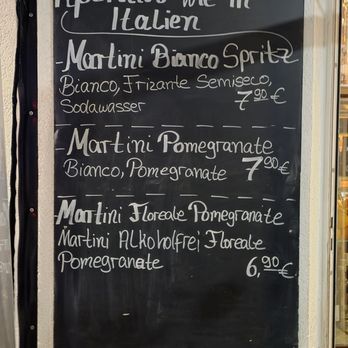 Aperitivo wie in
Italien
- Martini Bianco Spritz
Bianco, Frizante Semiseco,
Sodawasser 7,90 €
- Martini Pomegranate
Bianco, Pomegranate 7,90 €
- Martini Floreale Pomegranate
Martini Alkoholfrei Floreale
Pomegranate 6,90 €